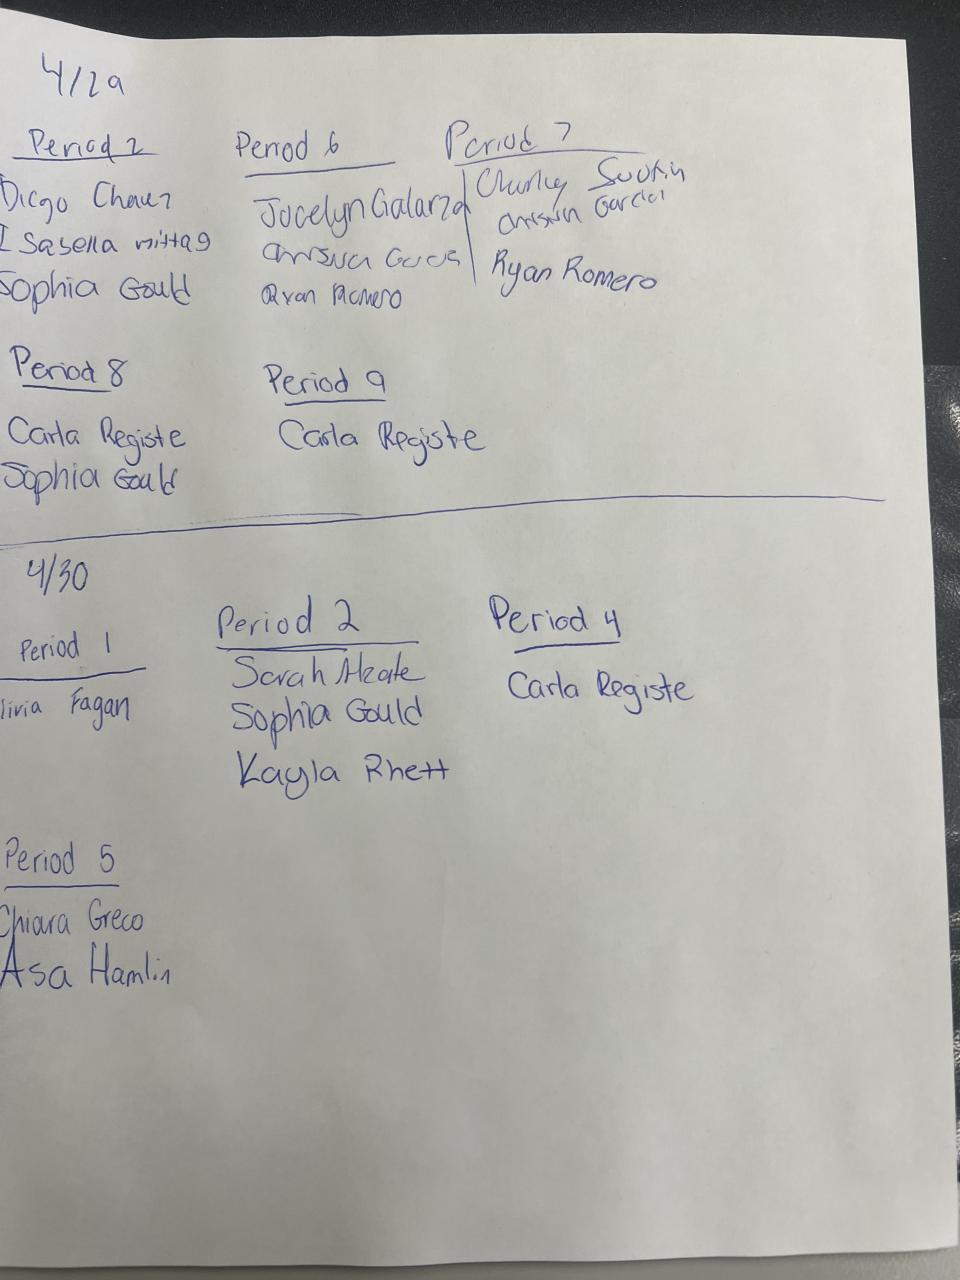 4/29
Period 2
Diego Chavez
Isabella
Sophia Gould
Period 6
Jocelyn Galarza
Ryan Romero
Period 7
Charley
Garcia
Ryan Romero
Period 8
Carla Registe
Sophia Gould
Period 9
Carla Registe
4/30
Period 1
livia Fagan
Period 2
Sarah Alzate
Sophia Gould
Kayla Rhett
Period 4
Carla Registe
Period 5
Chiara Greco
Asa Hamlin